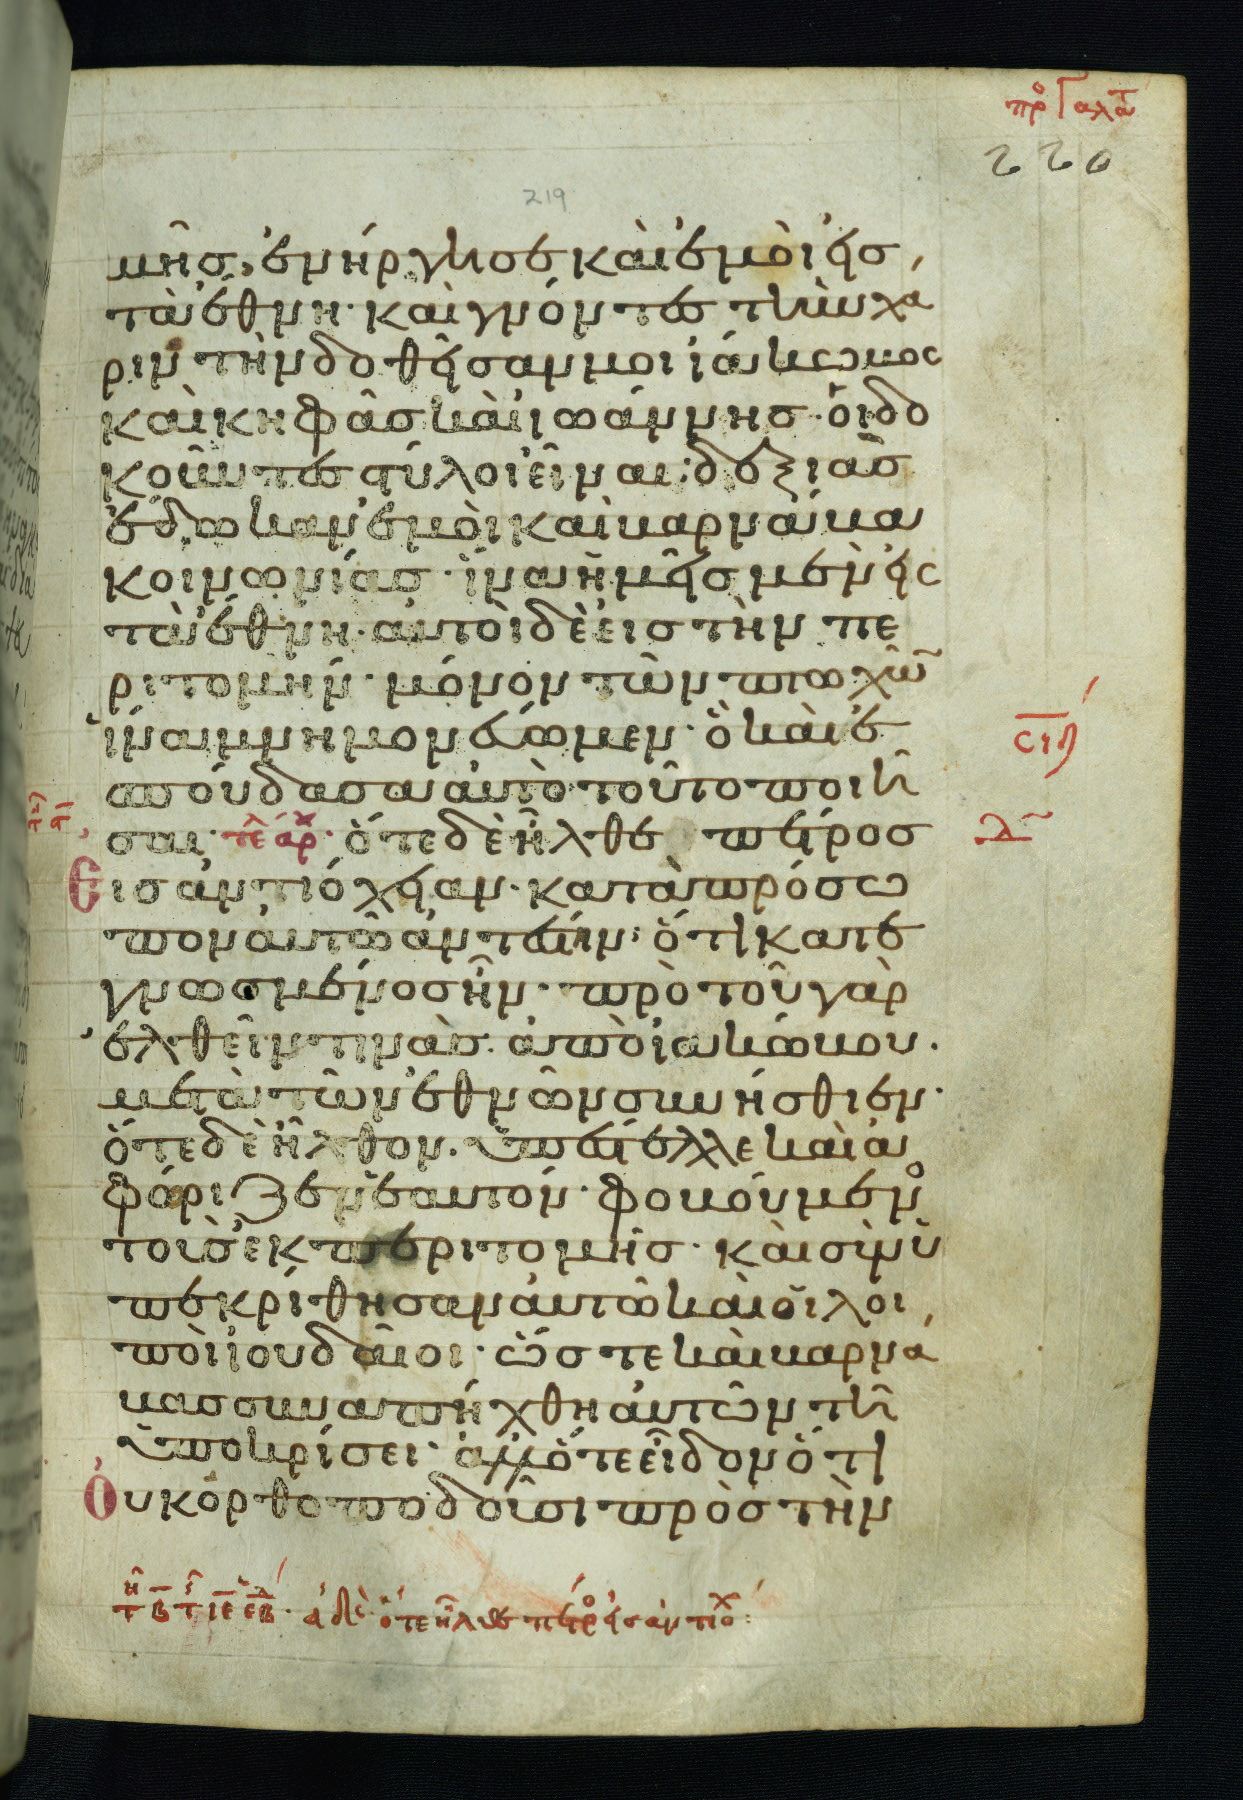 πρ Γαλατ
220
219
μῆς, ἐνήργησε καὶ ἐμοὶ εἰς
τὰ ἔθνη· καὶ γνόντες τὴν χά
ριν τὴν δοθεῖσαν μοι ἰάκωβος
καὶ κηφᾶς καὶ ἰωάννης· οἱ δο
κοῦντες στύλοι εἶναι· δεξιὰς
ἔδωκαν ἐμοὶ καὶ βαρνάβα
κοινωνίας· ἵνα ἡμεῖς μὲν εἰς
τὰ ἔθνη· αὐτοὶ δὲ εἰς τὴν πε
ριτομήν· μόνον τῶν πτωχῶ
ἵνα μνημονεύωμεν· ὃ καὶ ἐ
σπούδασα αὐτὸ τοῦτο ποιῆ
σαι· τε αρχ· ὅτε δὲ ἦλθε πέτρος
εἰς ἀντιόχειαν· κατὰ πρόσω
πον αὐτῶ ἀντέστην· ὅτι κατε
γνωσμένος ἦν· πρὸ τοῦ γὰρ
ἐλθεῖν τινὰς ἀπὸ ἰακώβου·
μετὰ τῶν ἐθνῶν συνήσθιεν·
ὅτε δὲ ἦλθον· ὑπέστελλε καὶ ἀ
φόριζεν ἑαυτόν· φοβούμενο
τοὺς ἐκ περιτομῆς· καὶ συνϋ
πεκρίθησαν αὐτῶ καὶ οἱ λοι
ποὶ ἰουδαῖοι· ὥστε καὶ βαρνά
βας συναπήχθη αὐτῶν τῆ
ὑποκρίσει· ἀλλ ὅτε εἶδον ὅτι
οὐκ ὀρθοποδοῦσι πρὸς τὴν
ἀδελ ὅτε ἦλθε πέτρο εἰς ἀντιοχ